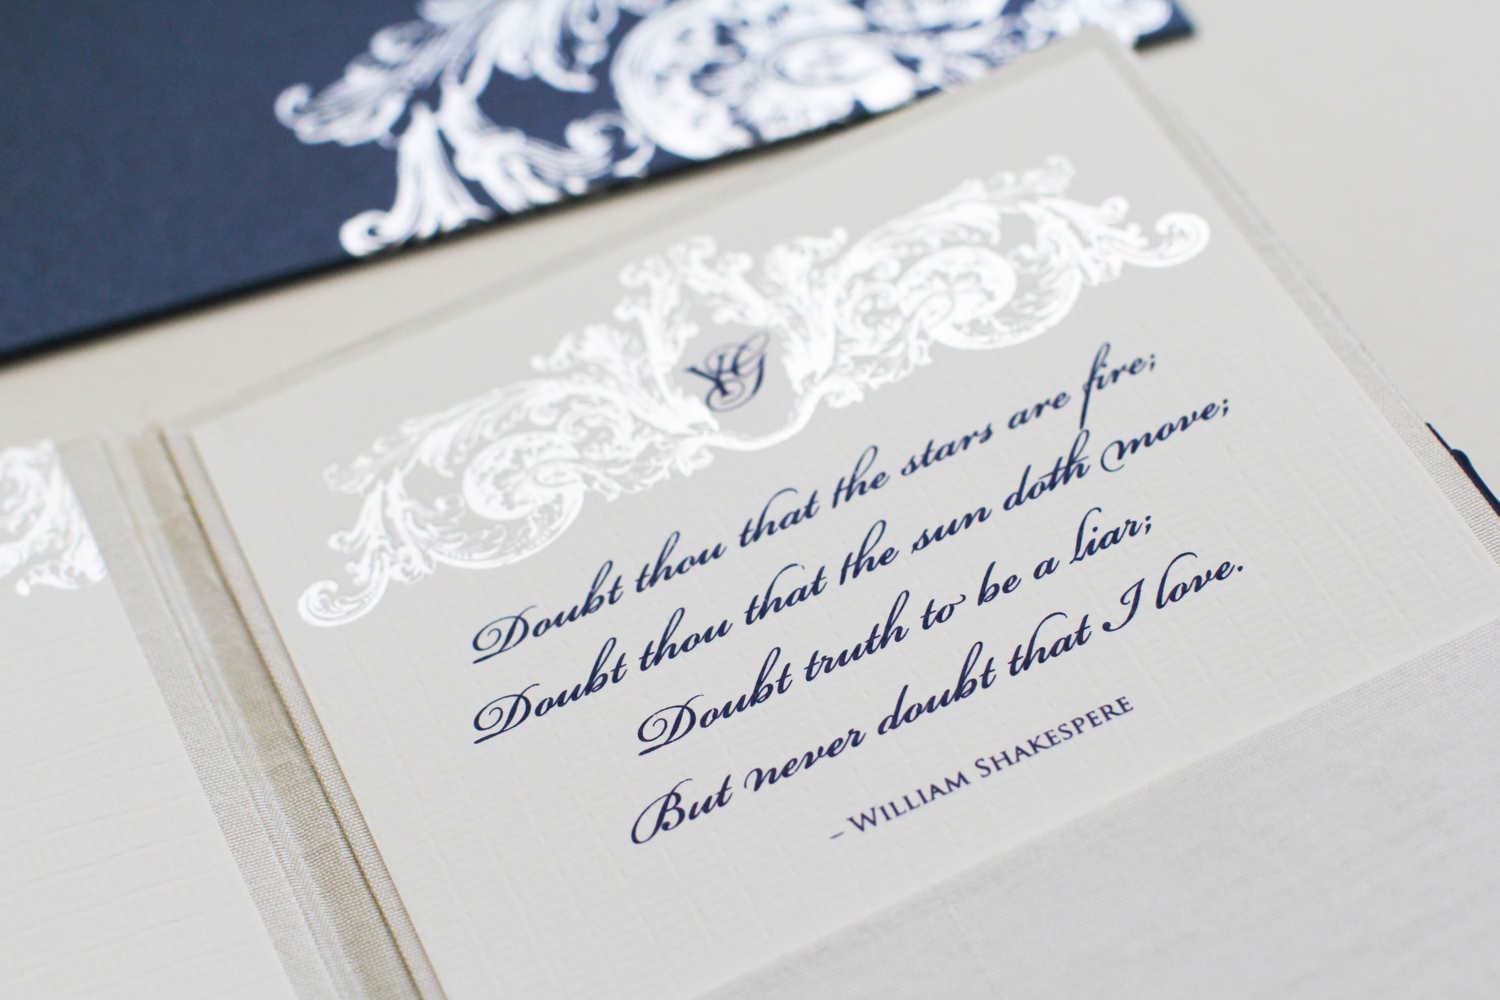 KG
Doubt thou that the stars are fire;
Doubt thou that the sun doth move;
Doubt truth to be a liar;
But never doubt that I love.
– WILLIAM SHAKESPERE